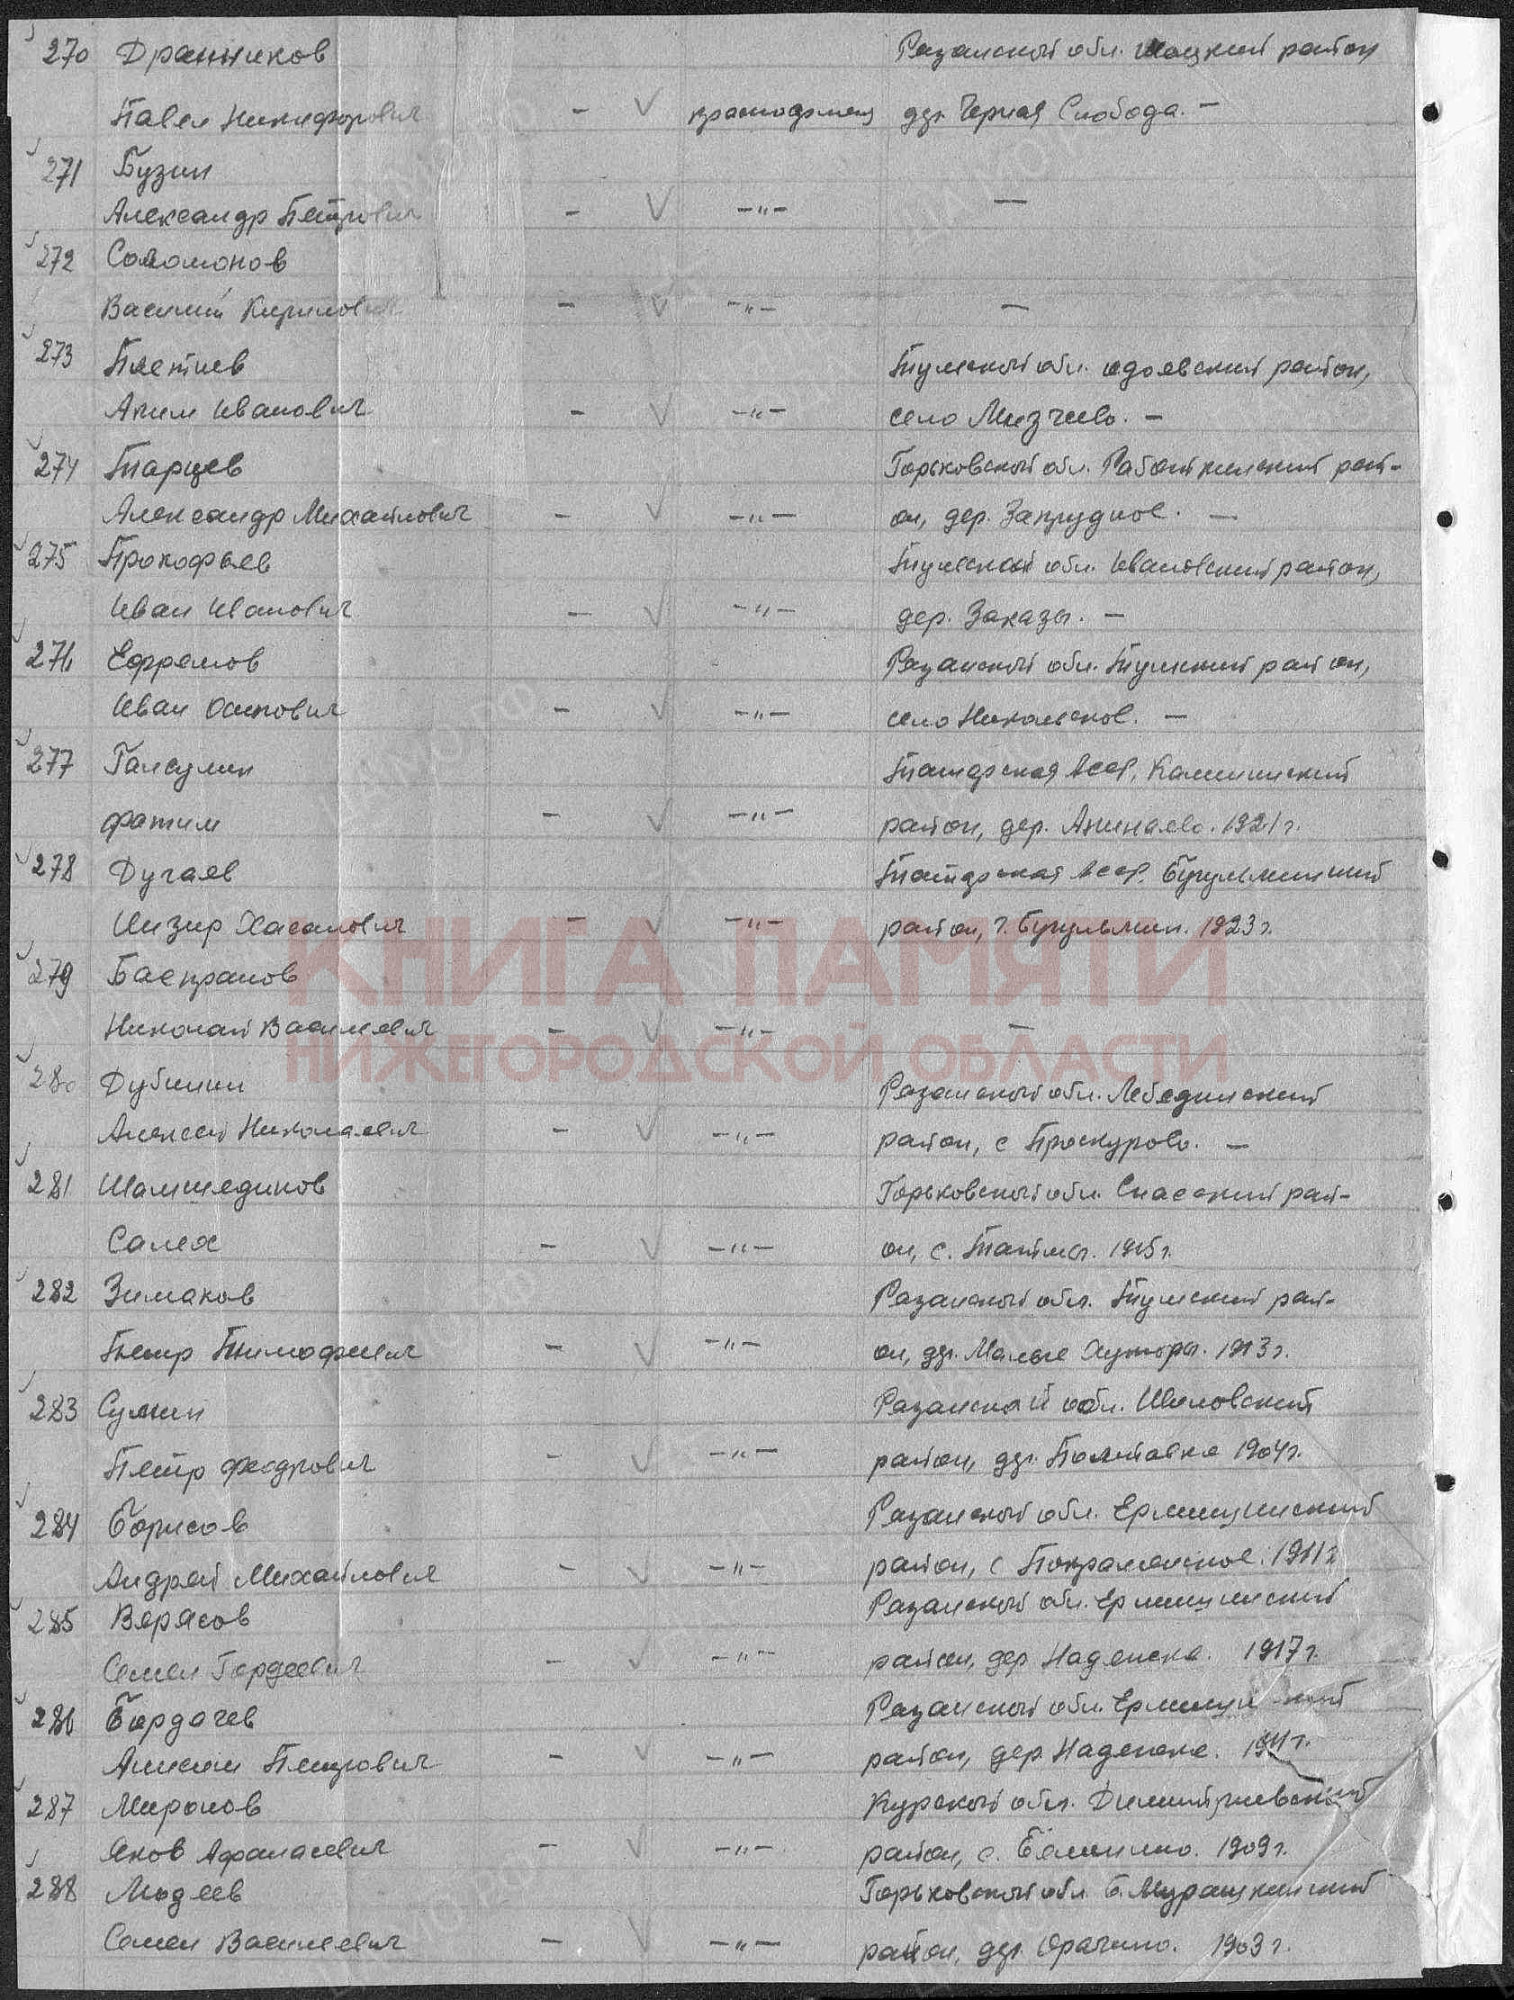 270 Дранников Рязанской обл. Шацкий район
Павел Никифорович - красноармеец дер. Черная Слобода. -
271 Бузин
Александр Петрович - -"- -
272 Соломонов
Василий Кирилович - -"- -
273 Плетнев Тульской обл. Одоевский район,
Аким Иванович - -"- село Мизгево. -
274 Тарцев Горьковской обл. Работкинский рай-
Александр Михайлович - -"- он, дер. Запрудное. -
275 Прокофьев Тульской обл. Ивановский район,
Иван Иванович - -"- дер. Заказы. -
276 Ефремов Рязанской обл. Тумский район,
Иван Осипович - -"- село Никольское. -
277 Гансулин Татарская АССР,
фатим - -"- район, дер. 1921 г.
278 Дугаев Татарская АССР. Бугульминский
Хасанович - -"- район, г. Бугульмин. 1923 г.
279 Баскраков
Николай Василевич - -"- -
280 Дубинин Рязанской обл. Лебединский
Алексей Николаевич - -"- район, с Проскурово. -
281 Шамшединов Горьковской обл. Спасский рай-
Салех - -"- он, с. 1915 г.
282 Зимаков Рязанской обл. Тумский рай-
Петр Тимофеевич - -"- он, дер. Малые Хуторы. 1913 г.
283 Сумин Рязанской обл. Шиловский
Петр Федрович - -"- район, дер. Полтавка 1904 г.
284 Борисов Рязанской обл. Ермишинский
Андрей Михайлович - -"- район, с 1911 г
285 Верясов Рязанской обл. Ермишинский
Семен Гордеевич - -"- район, дер Надежка. 1917 г.
286 Бардачев Рязанской обл.
Петрович - -"- район, дер Надежка. 1911 г.
287 Миронов Курской обл. Димитриевский
Яков Афанасевич - -"- район, с. 1909 г.
288 Модеев Горьковской обл Б. Мурашкинский
Семен Василевич - -"- район, дер. Фрагино. 1903 г.
КНИГА ПАМЯТИ
НИЖЕГОРОДСКОЙ ОБЛАСТИ